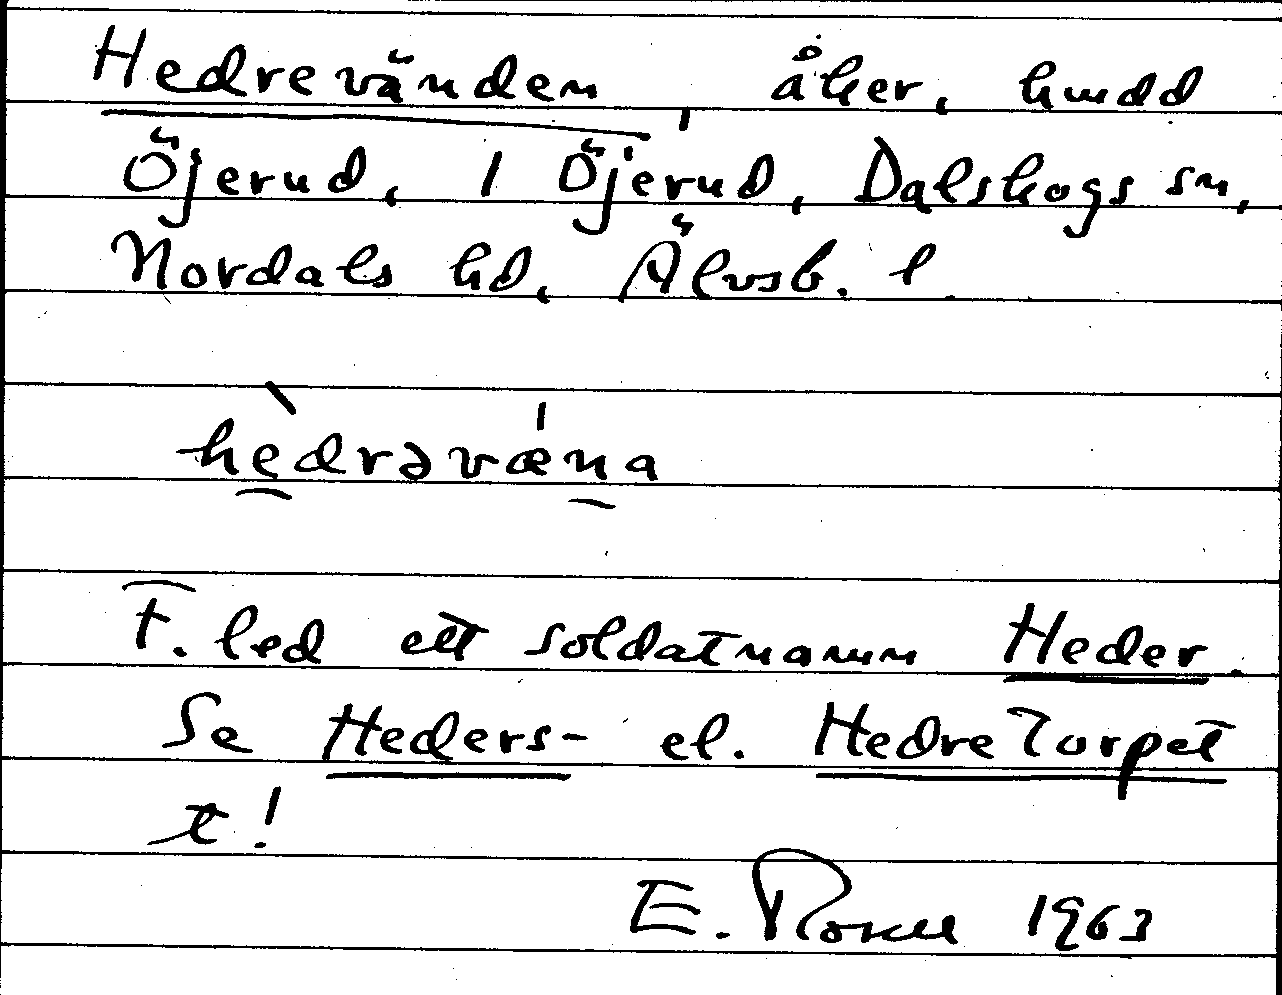 Hedrevänden, åker, hmdd
Öjerud, 1 Öjerud, Dalskogs sn,
Nordals hd, Älvsb. l.
hèdrəvæna
F. led ett soldatnamn Heder.
Se Heders- el. Hedretorpet
t!
E. 1963